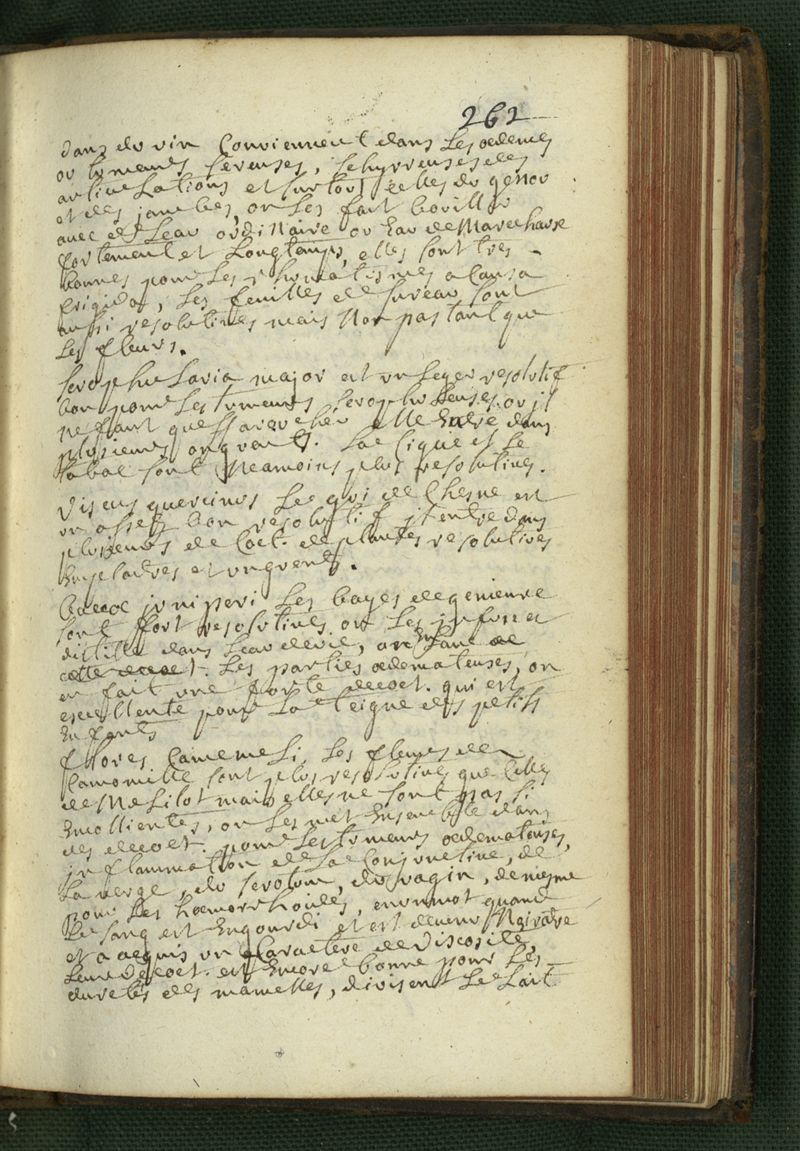 262
dans du vin Conviennent dans Les œdemes
ou tumeurs sereuses, schyrreuses des
articulations et surtout celles du genou
et des jambes, on Les fait bouillir
avec de Leau ordinaire ou Eau de Marechaux
fortement et Longtemps, elles sont tres
bonnes pour Les rhumatismes a Causa
frigida, Les feuilles de sureau sont
aussi resolutives mais Non pas tant que
Les fleurs.
scrophuLaria major est un Leger resolutif
bon pour Les tumeurs scrophuleuses, où il
ne faut que
plusieurs onguents. La Cigue et Le
tabac sont Neamoins plus resolutives.
Viscus quercinus Le gui de Chesne est
un assez bon resolutif, il entre dans
plusieurs decoct. de plantes resolutives
Emplastres et onguents.
Baccæ juniperi Les bayes de genievre
sont fort resolutives on Les infuse et
distille dans Leau de vie, on En Lave
Les parties œdemateuses, on
en fait une forte decoct. qui est
excellente pour La teigne des petits
Enfants
flores Camemeli Les fleurs de
Camomille sont plus resolutives que Celles
de MeLilot mais elles ne sont pas si
Emollientes, on Les met Ensemble dans
des decoct. pour Les tumeurs œdemateuses,
inflammation de La Conjonctive, de
La verge, du scrotum, du vagin, de mesme
pour Les hœmorrhoides, en un mot quand
Le sang est Engourdi et est devenu Noirastre
et a acquis un Caractere de Viscosité,
Leur decoct. est Encore bonne pour Les
duretés des mamelles, divisent Le Lait